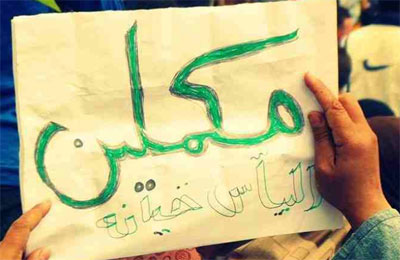 مكملين
اليأس خيانة